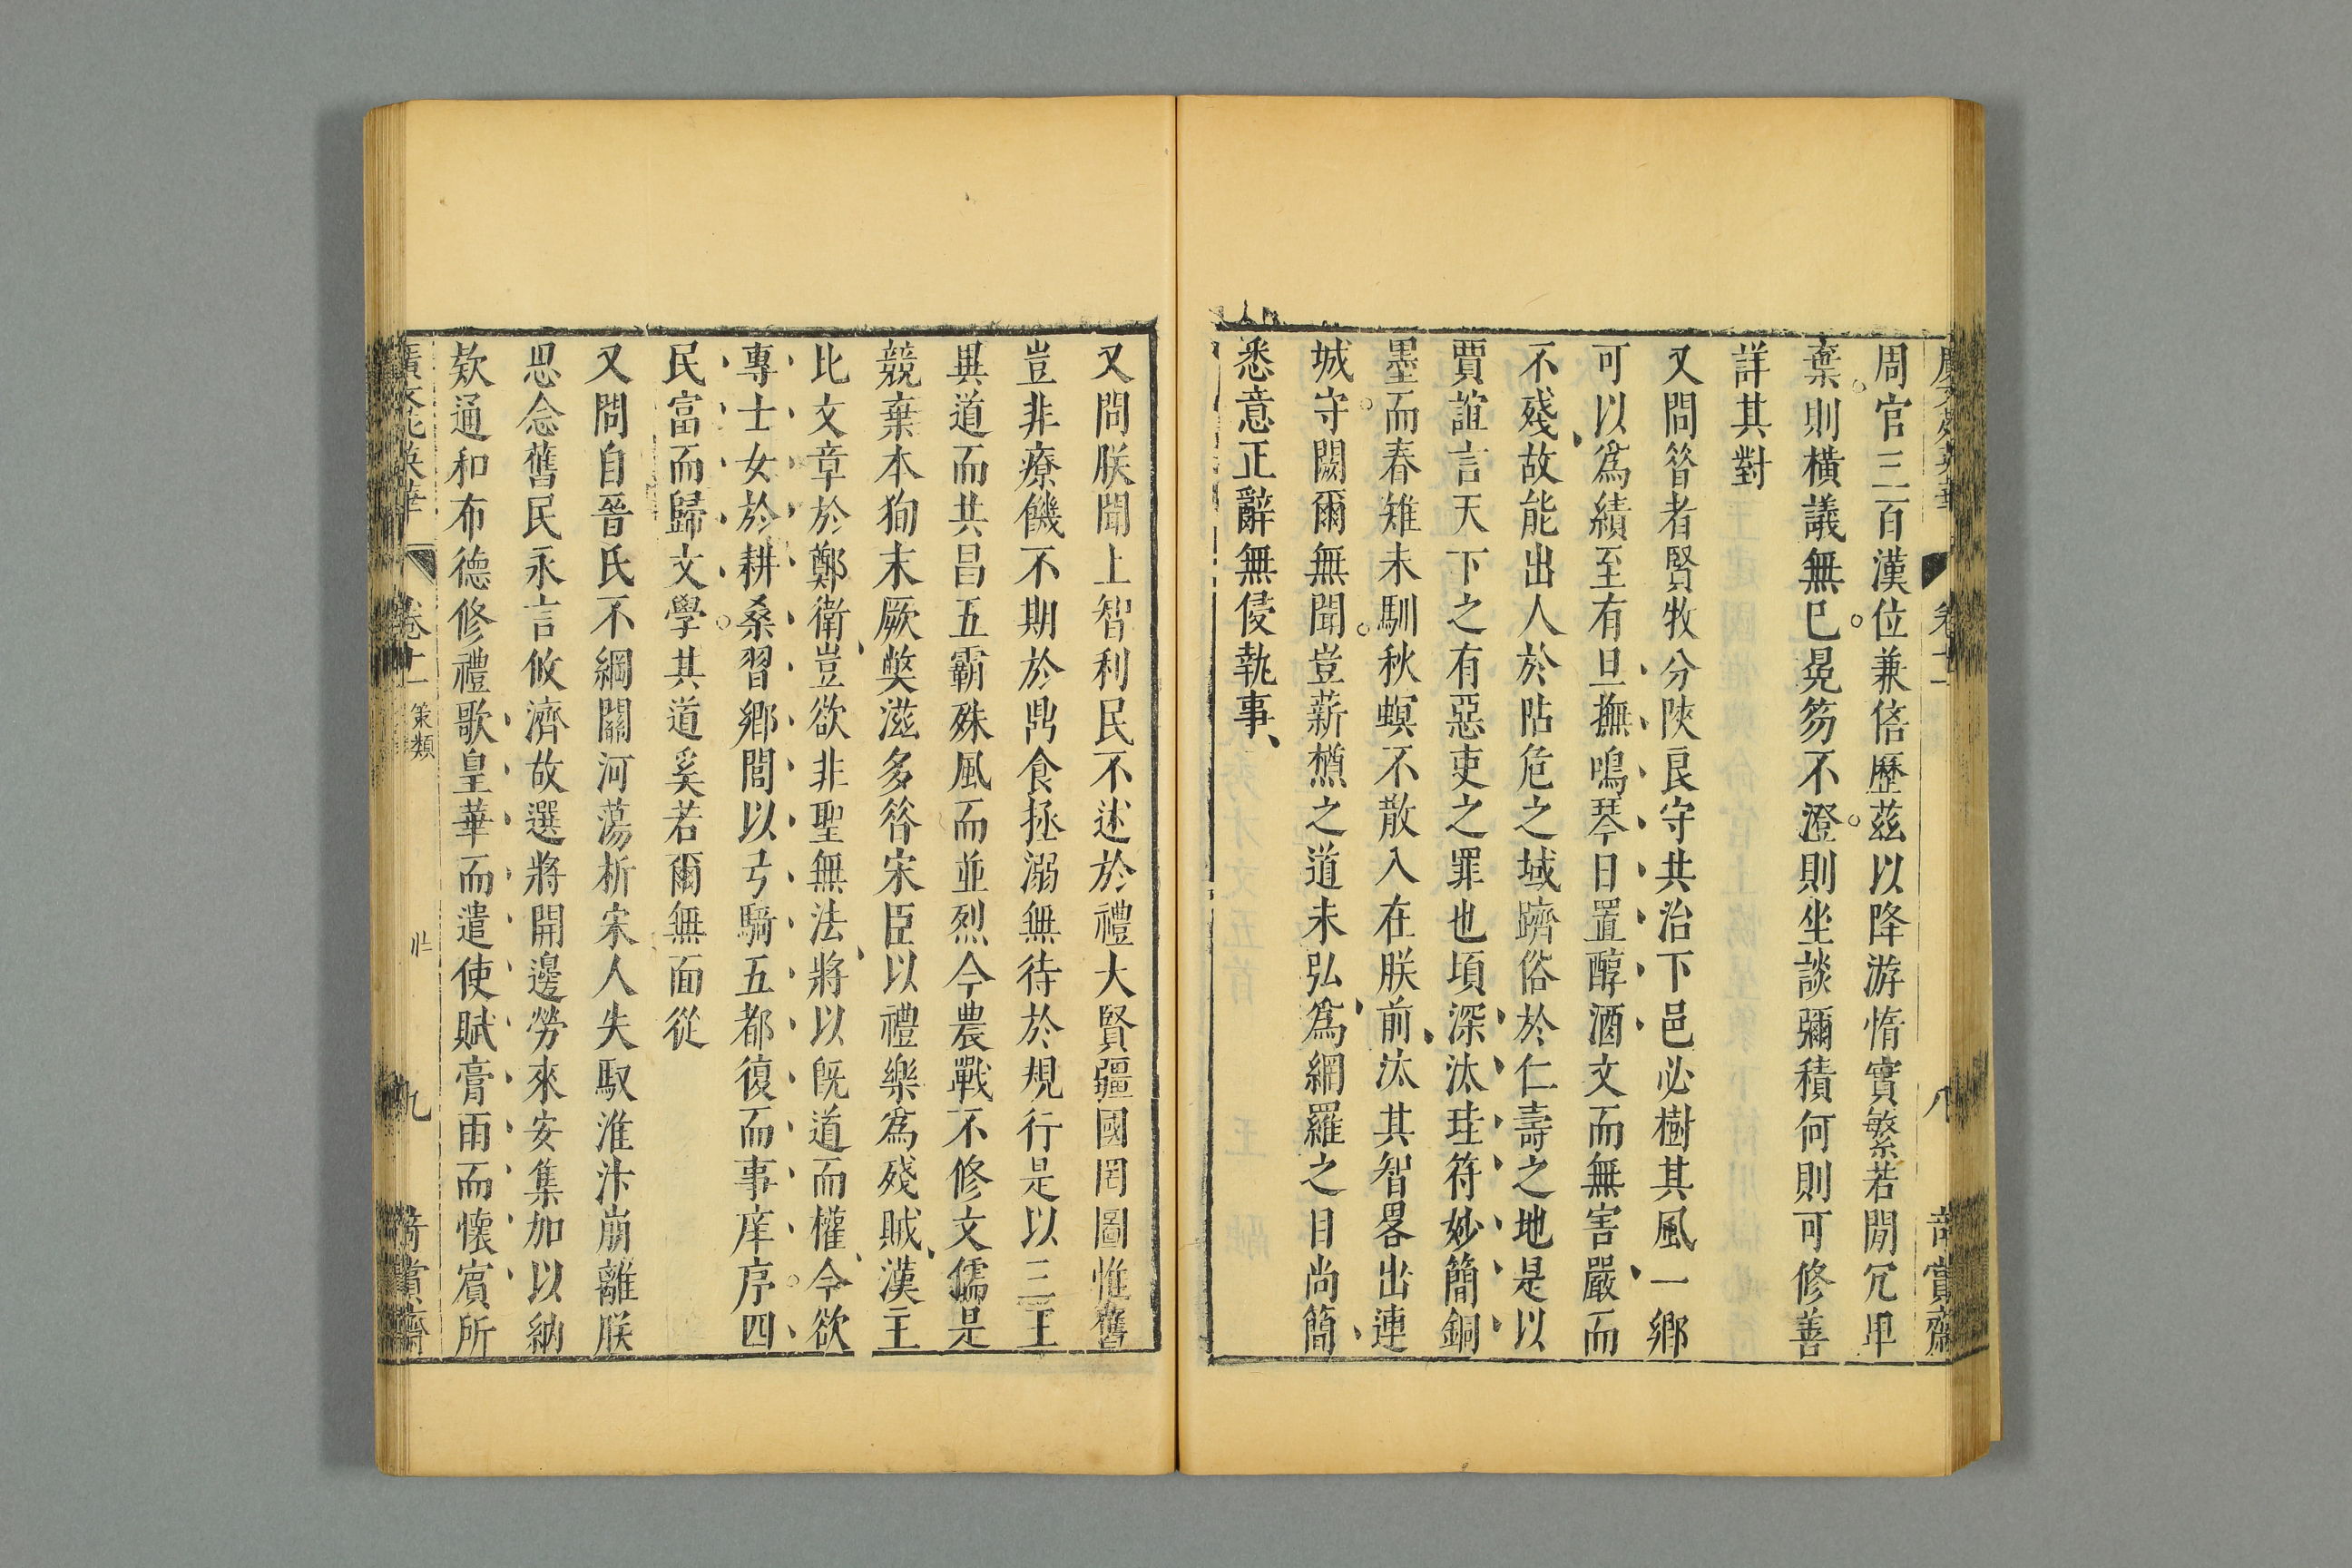 周官三百漢位兼倍歷茲以降游惰實繁若閒冗畢
棄則橫議無已冕笏不澄則坐談彌積何則可修善
詳其對
又問昝者賢牧分陝良守共治下邑必樹其風一鄉
可以爲績至有旦撫鳴琴日置醇酒文而無害嚴而
不殘故能出人於阽危之域躋俗於仁壽之地是以
賈誼言天下之有惡吏之罪也頃深汰珪符妙簡銅
墨而春雉未馴秋螟不散入在朕前汰其智畧出連
城守闕爾無聞豈薪槱之道未弘爲網羅之目尚簡
悉意正辭無侵執事
又問朕聞上智利民不述於禮大賢疆國罔圖惟舊
豈非療饑不期於鼎食拯溺無待於規行是以三王
異道而共昌五霸殊風而並烈今農戰不修文儒是
競棄本狥末厥獘滋多昝宋臣以禮樂爲殘賊漢主
比文章於鄭衛豈欲非聖無法將以旣道而權今欲
專士女於耕桑習鄉閭以弓騎五都復而事庠序四
民富而歸文學其道奚若爾無面從
又問自晉氏不綱關河蕩析宋人失馭淮汴崩離朕
思念舊民永言攸濟故選將開邊勞來安集加以納
欵通和布德修禮歌皇華而遣使賦膏雨而懷賓所
卷十一 策類 九